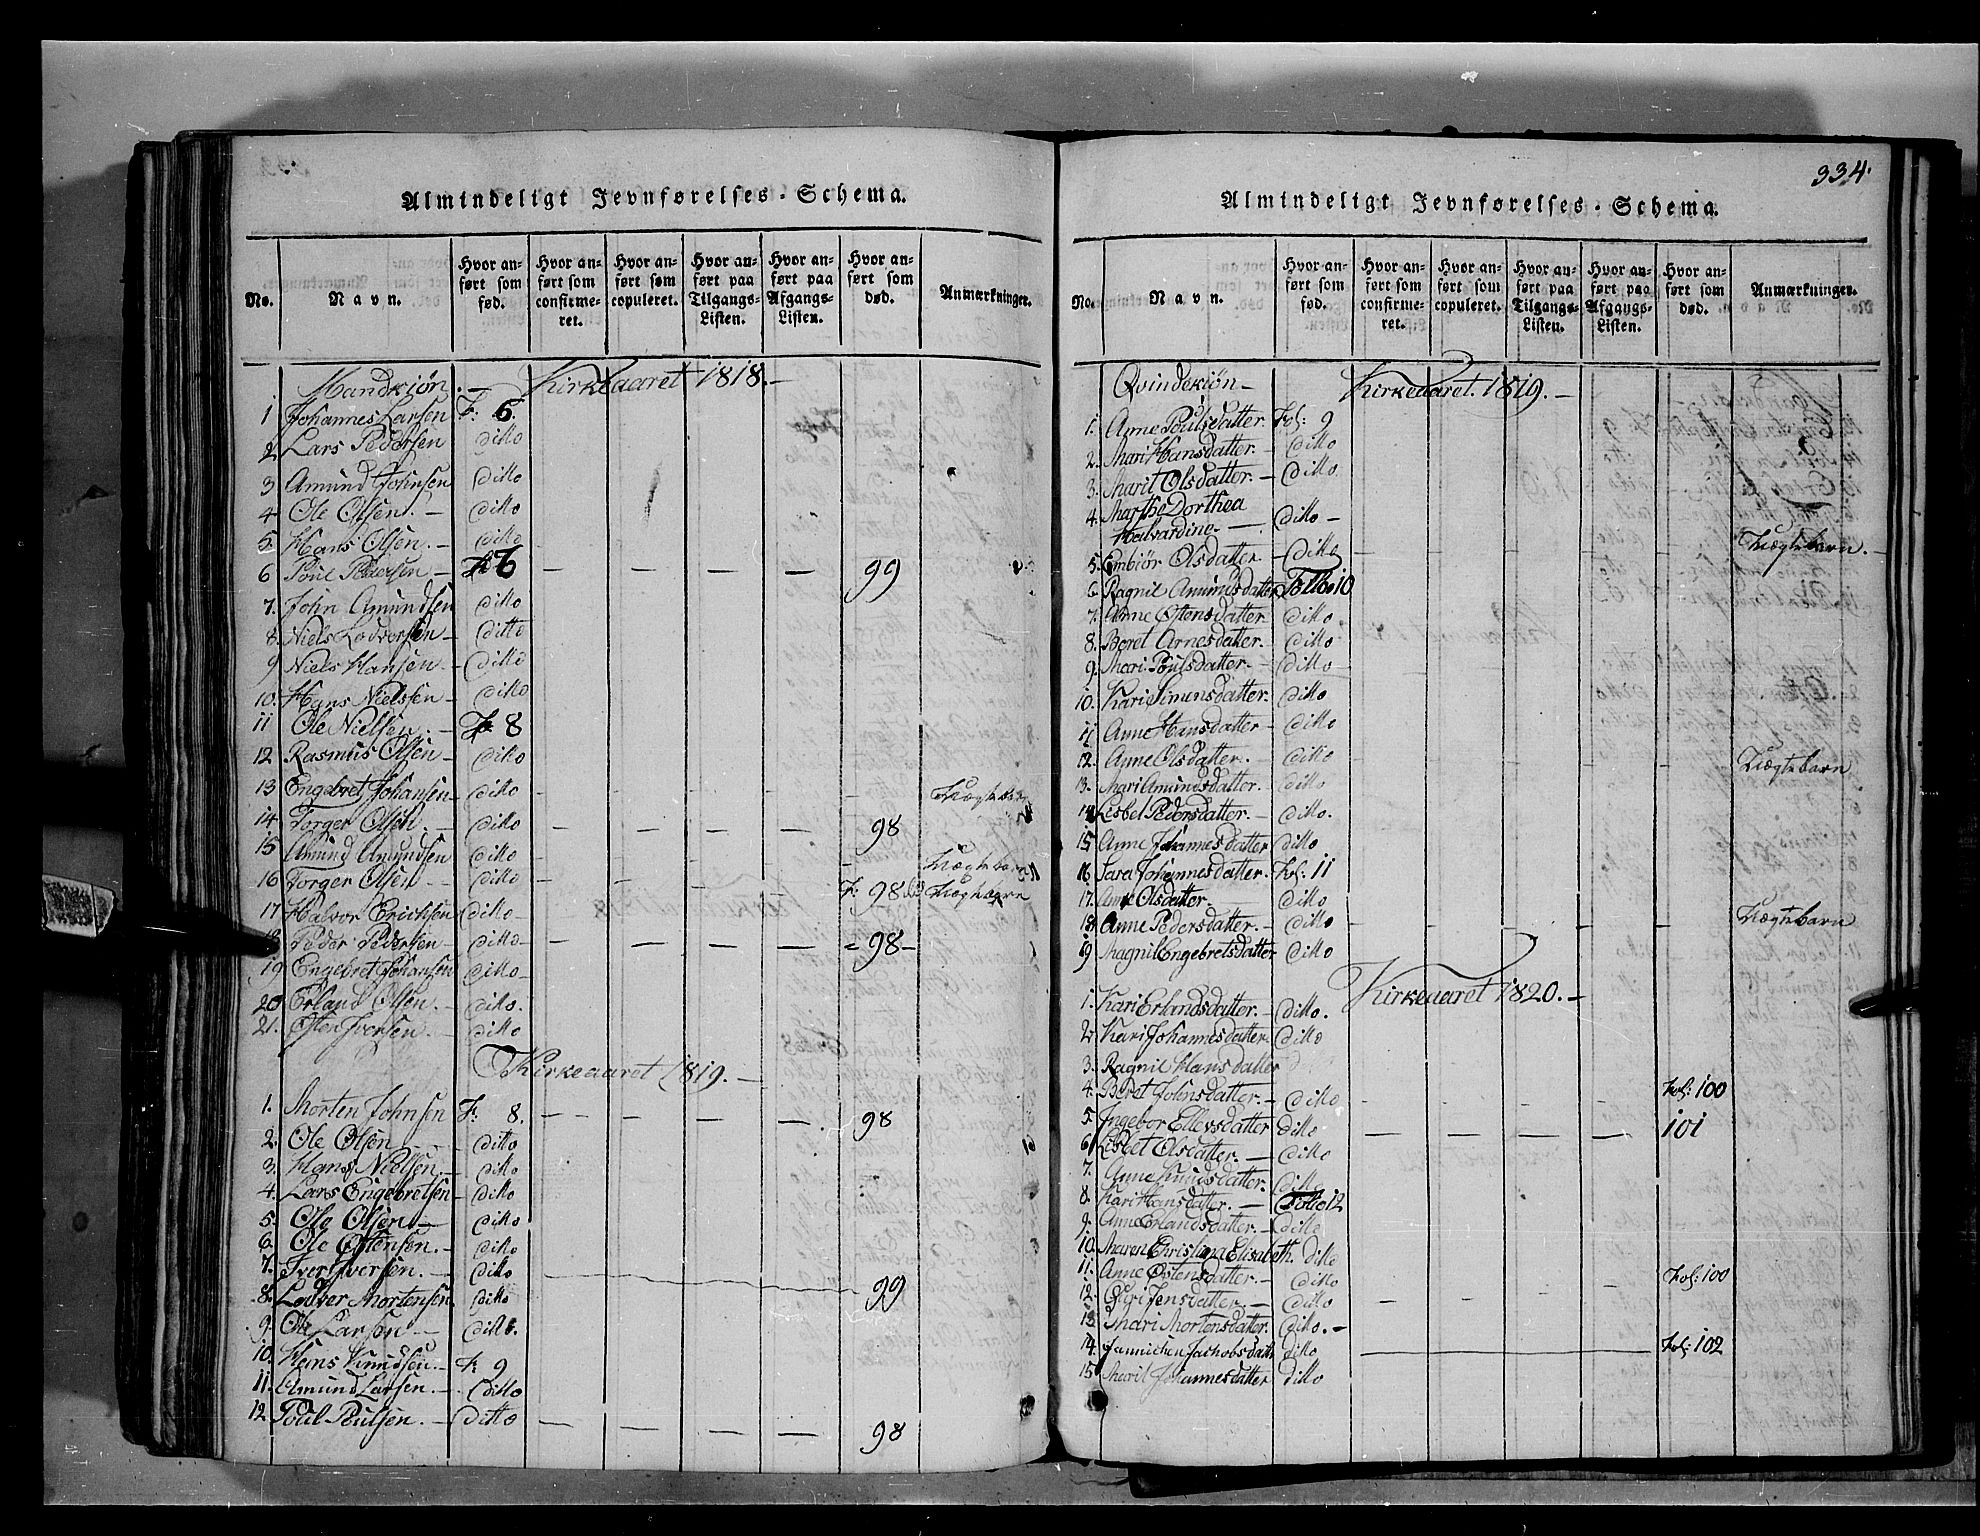 Almindeligt Jevnførelses-Schema.
No. Navn. Hvor anført som fød. Hvor anført som confirmeret. Hvor anført som copuleret. Hvor anført paa Tilgangs-Listen. Hvor anført paa Afgangs-Listen. Hvor anført som død. Anmærkninger.
Mandkiøn. Kirkeaaret 1818.
1 Johannes Larsen F: 6.
2 Lars Pedersen ditto
3 Amund Johnsen ditto
4 Ole Olsen. ditto
5. Hans Olsen. ditto
6 Poul Pedersen F 6 99
7. John Amundsen ditto
8. Niels Lodvorsen ditto
9 Niels Hansen ditto
10. Hans Nielsen ditto
11 Ole Nielsen F. 8
12 Rasmus Olsen ditto
13 Engebret Johansen ditto
14 Torger Olsen. ditto 98
15 Amund Amundsen ditto
16 Torger Olsen ditto F. 98
17 Halvor Erichsen ditto
18 Peder Pedersen ditto 98
19 Engebret Johansen ditto
20 Erland Olsen. ditto.
21. Osten Iversen. ditto
Kirkeaaret 1819.
1. Morten Johnsen F. 8. 98
2. Ole Olsen ditto
3. Hans Nielsen. ditto
4. Lars Engebretsen ditto
5. Ole Olsen ditto
6. Ole Ostensen. ditto
7. Iver Iversen. ditto
8. Lodver Mortensen ditto 99
9. Ole Larsen ditto.
10. Hans Knudsen. F. 9
11. Amund Larsen. ditto
12 Poul Poulsen. ditto 98
334.
Almindeligt Jevnførelses-Schema.
No. Navn. Hvor anført som fød. Hvor anført som confirmeret. Hvor anført som copuleret. Hvor anført paa Tilgangs-Listen. Hvor anført paa Afgangs-Listen. Hvor anført som død. Anmærkninger.
Qvindekiøn Kirkeaaret. 1819.
1. Anne Poulsdatter. Fol: 9
2. Mari Hansdatter. ditto
3. Marit Olsdatter. ditto
4. Marthe Dorthea
Halvardine. ditto
5. Embiør Olsdatter ditto
6 Ragnil Amundsdatter Folio 10
7. Anne Ostensdatter ditto
8. Beret Arnesdatter. ditto
9. Mari Poulsdatter. ditto
10. Kari Simensdatter. ditto
11 Anne Hansdatter ditto
12. Anne Olsdatter. ditto
13. Mari Amundsdatter. ditto
14 Lisbet Pedersdatter. ditto.
15 Anne Johannesdatter ditto
16 Sara Johannesdatter. Fol: 11
17. Anne Olsdatter. ditto
18. Anne Pedersdatter. ditto
19 Magnil Engebretsdatter ditto
Kirkeaaret 1820.
1. Kari Erlandsdatter. ditto.
2. Kari Johannesdatter ditto
3. Ragnil Hansdatter
4. Beret Johnsdatter. ditto Fol: 100
5. Ingebor Ellevsdatter ditto 101
6. Lisbet Olsdatter. ditto
7. Anne Knudsdatter. ditto
8. Kari Hansdatter. Folio 12
9. Anne Erlandsdatter. ditto
10. Maren Christina Elisabeth. ditto
11. Anne Ostensdatter. ditto Fol: 100
12. Guri Jensdatter. ditto
13 Mari Mortensdatter. ditto.
14. Jannichen Jachobsdatter ditto Fol: 102
15 Marit Johannesdatter ditto